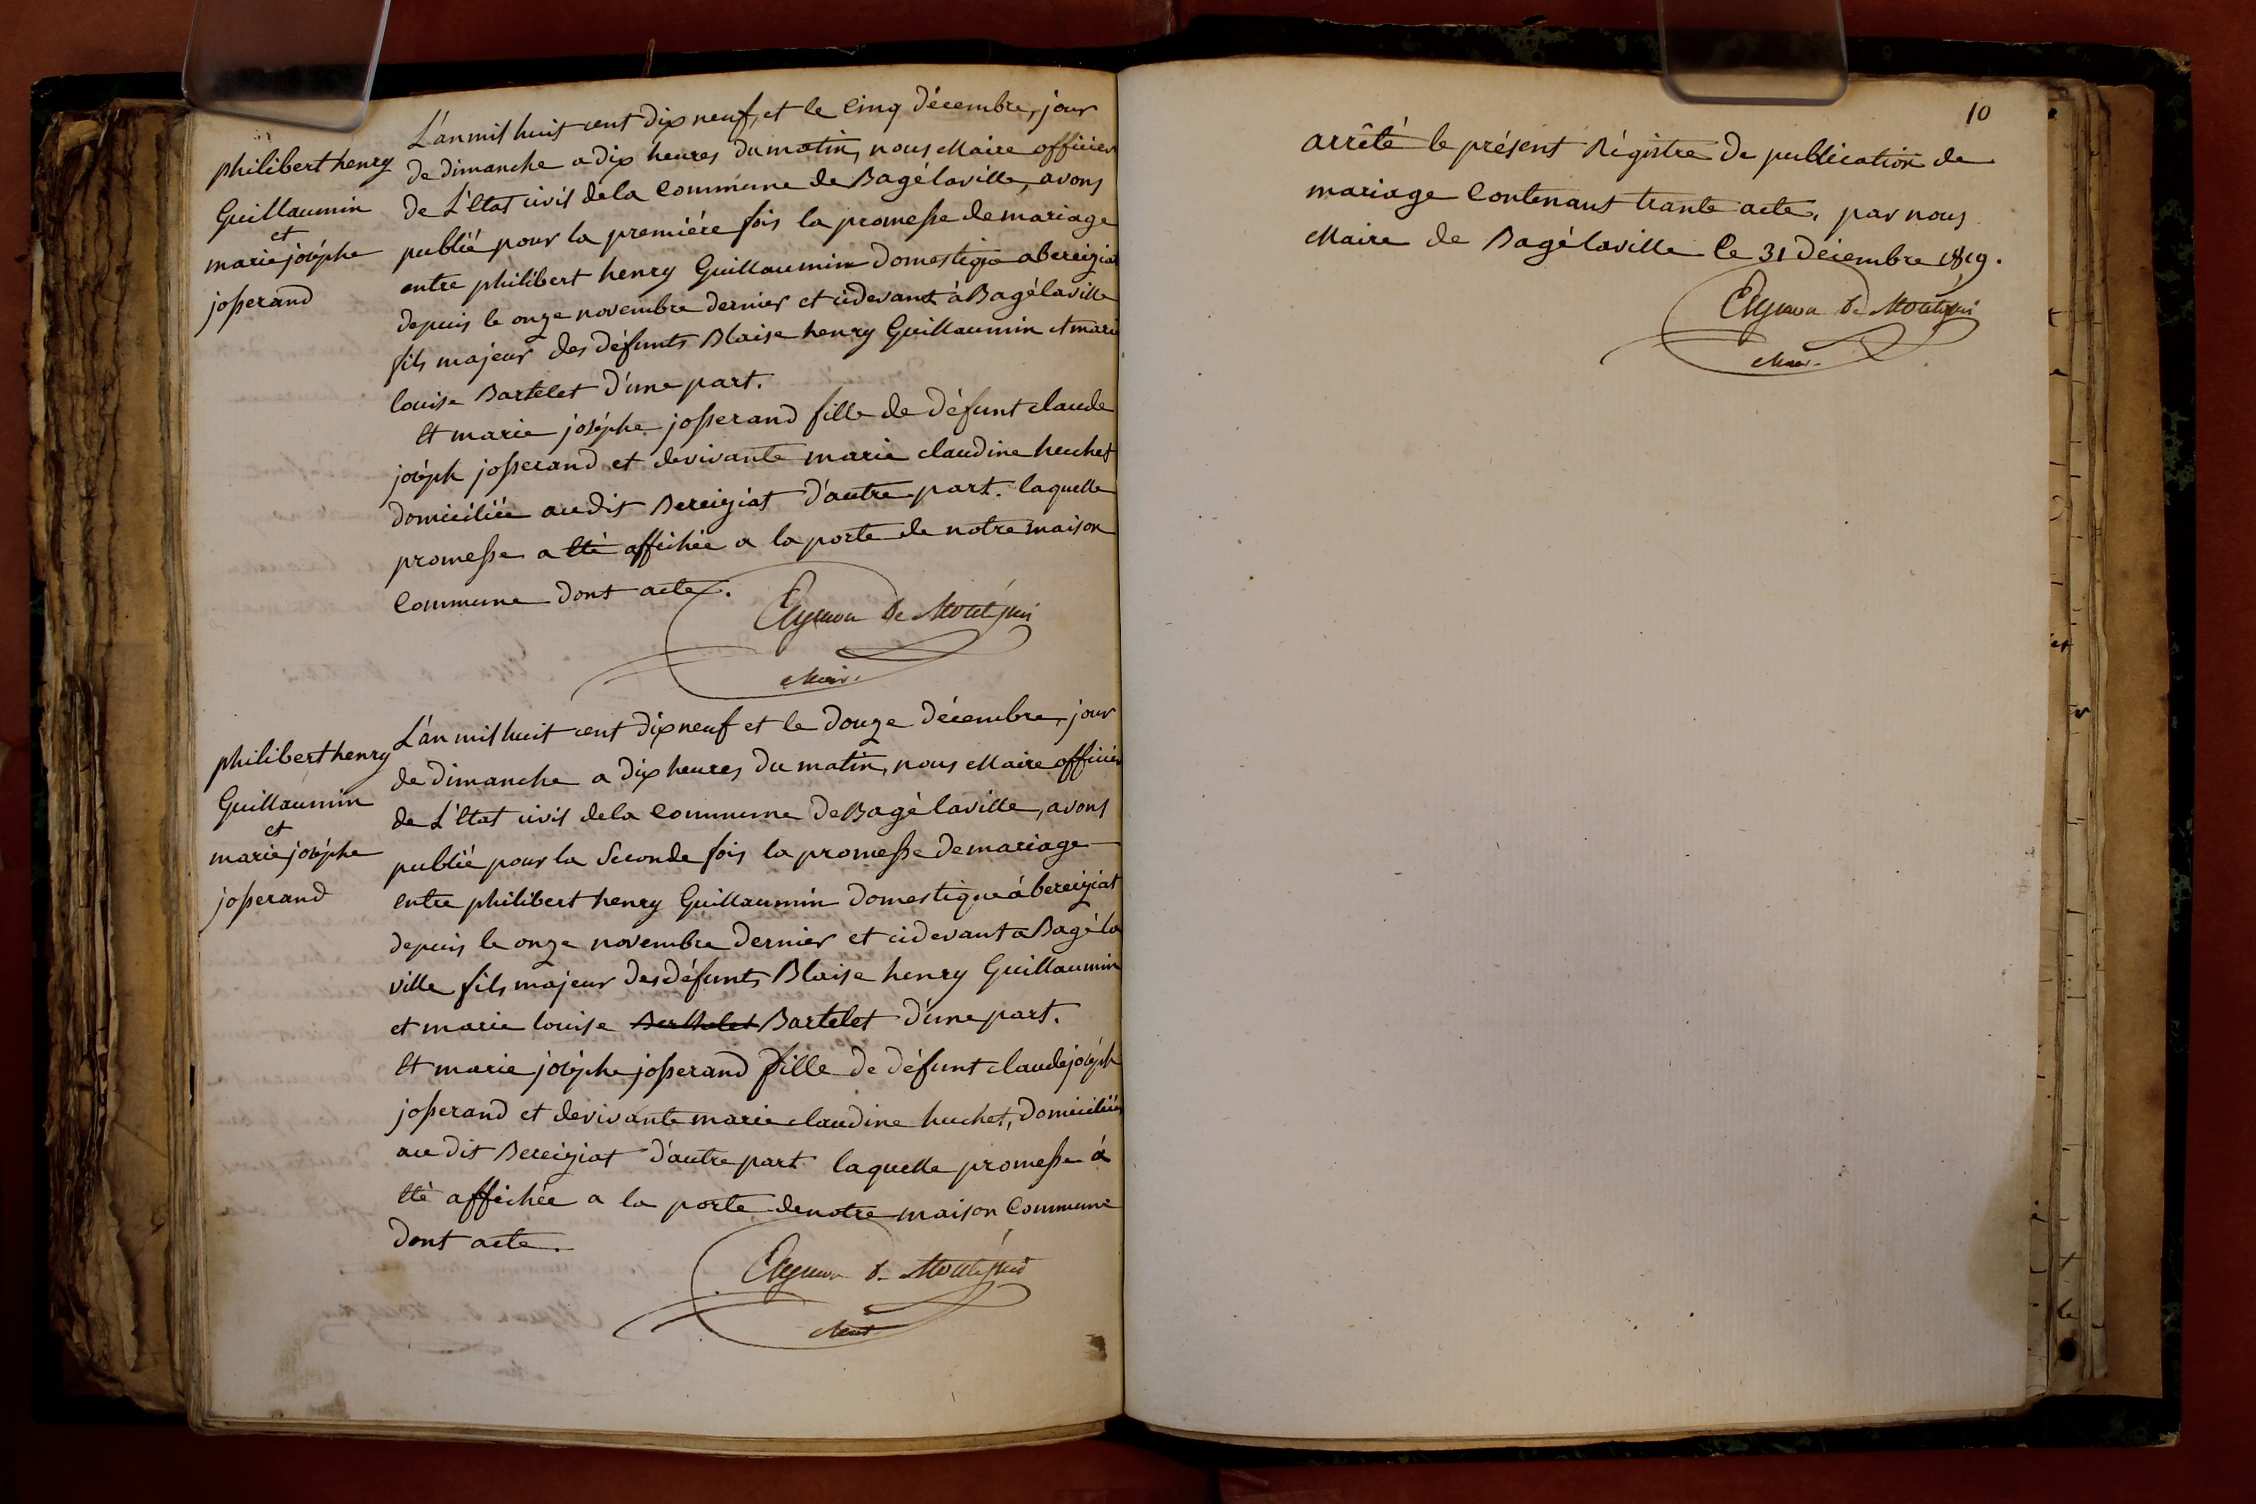 philibert henry
Guillaumin
et
marie joséphe
josserand
L'an mil huit cent dix neuf, et le Cinq décembre, jour
de dimanche a dix heures du matin, nous Maire officier
de L'état civil de la Commune de Bagélaville, avons
publié pour la premiére fois la promesse de mariage
entre philibert henry Guillaumin domestique a bereiziat
depuis le onze novembre dernier et cidevant à Bagélaville
fils majeur des défunts Blaise henry Guillaumin et marie
louise Bartelet d'une part.
Et marie joséphe josserand fille de défunt claude
joséph josserand et de vivante marie claudine huchet
domiciliée audit Bereiziat d'autre part. laquelle
promesse a été affichée a la porte de notre maison
Commune dont acte.
Aymon De Montépin
Maire
philibert henry
Guillaumin
et
marie joséphe
josserand
L'an mil huit cent dix neuf et le douze décembre, jour
de dimanche a dix heures du matin, nous Maire officier
de L'état civil de la Commune de Bagélaville, avons
publié pour la Seconde fois la promesse de mariage
entre philibert henry Guillaumin domestique á bereiziat
depuis le onze novembre dernier et cidevant a Bagéla
ville fils majeur des défunts Blaise henry Guillaumin
et marie louise Berthelet Bartelet d'une part.
Et marie joséphe josserand fille de défunt claude joséph
josserand et de vivante marie claudine huchet, domiciliée
au dit Bereiziat d'autre part laquelle promesse á
été affichée a la porte de notre maison Commune
dont acte.
Aymon De Montépin
Maire
10
arrêté le présent Régistre de publication de
mariage Contenant trante acte, par nous
Maire de Bagélaville le 31 décembre 1819.
Aymon De Montépin
Maire